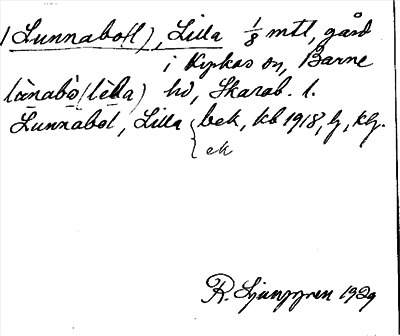 (Lunnabol(l), Lilla 1/8 mtl, gård
i Kyrkas sn, Barne
lùnabò (lìlla) hd, Skarab. l.
Lunnabol, Lilla { bek, kb 1918, h, kg.
ek
R. Ljunggren 1929